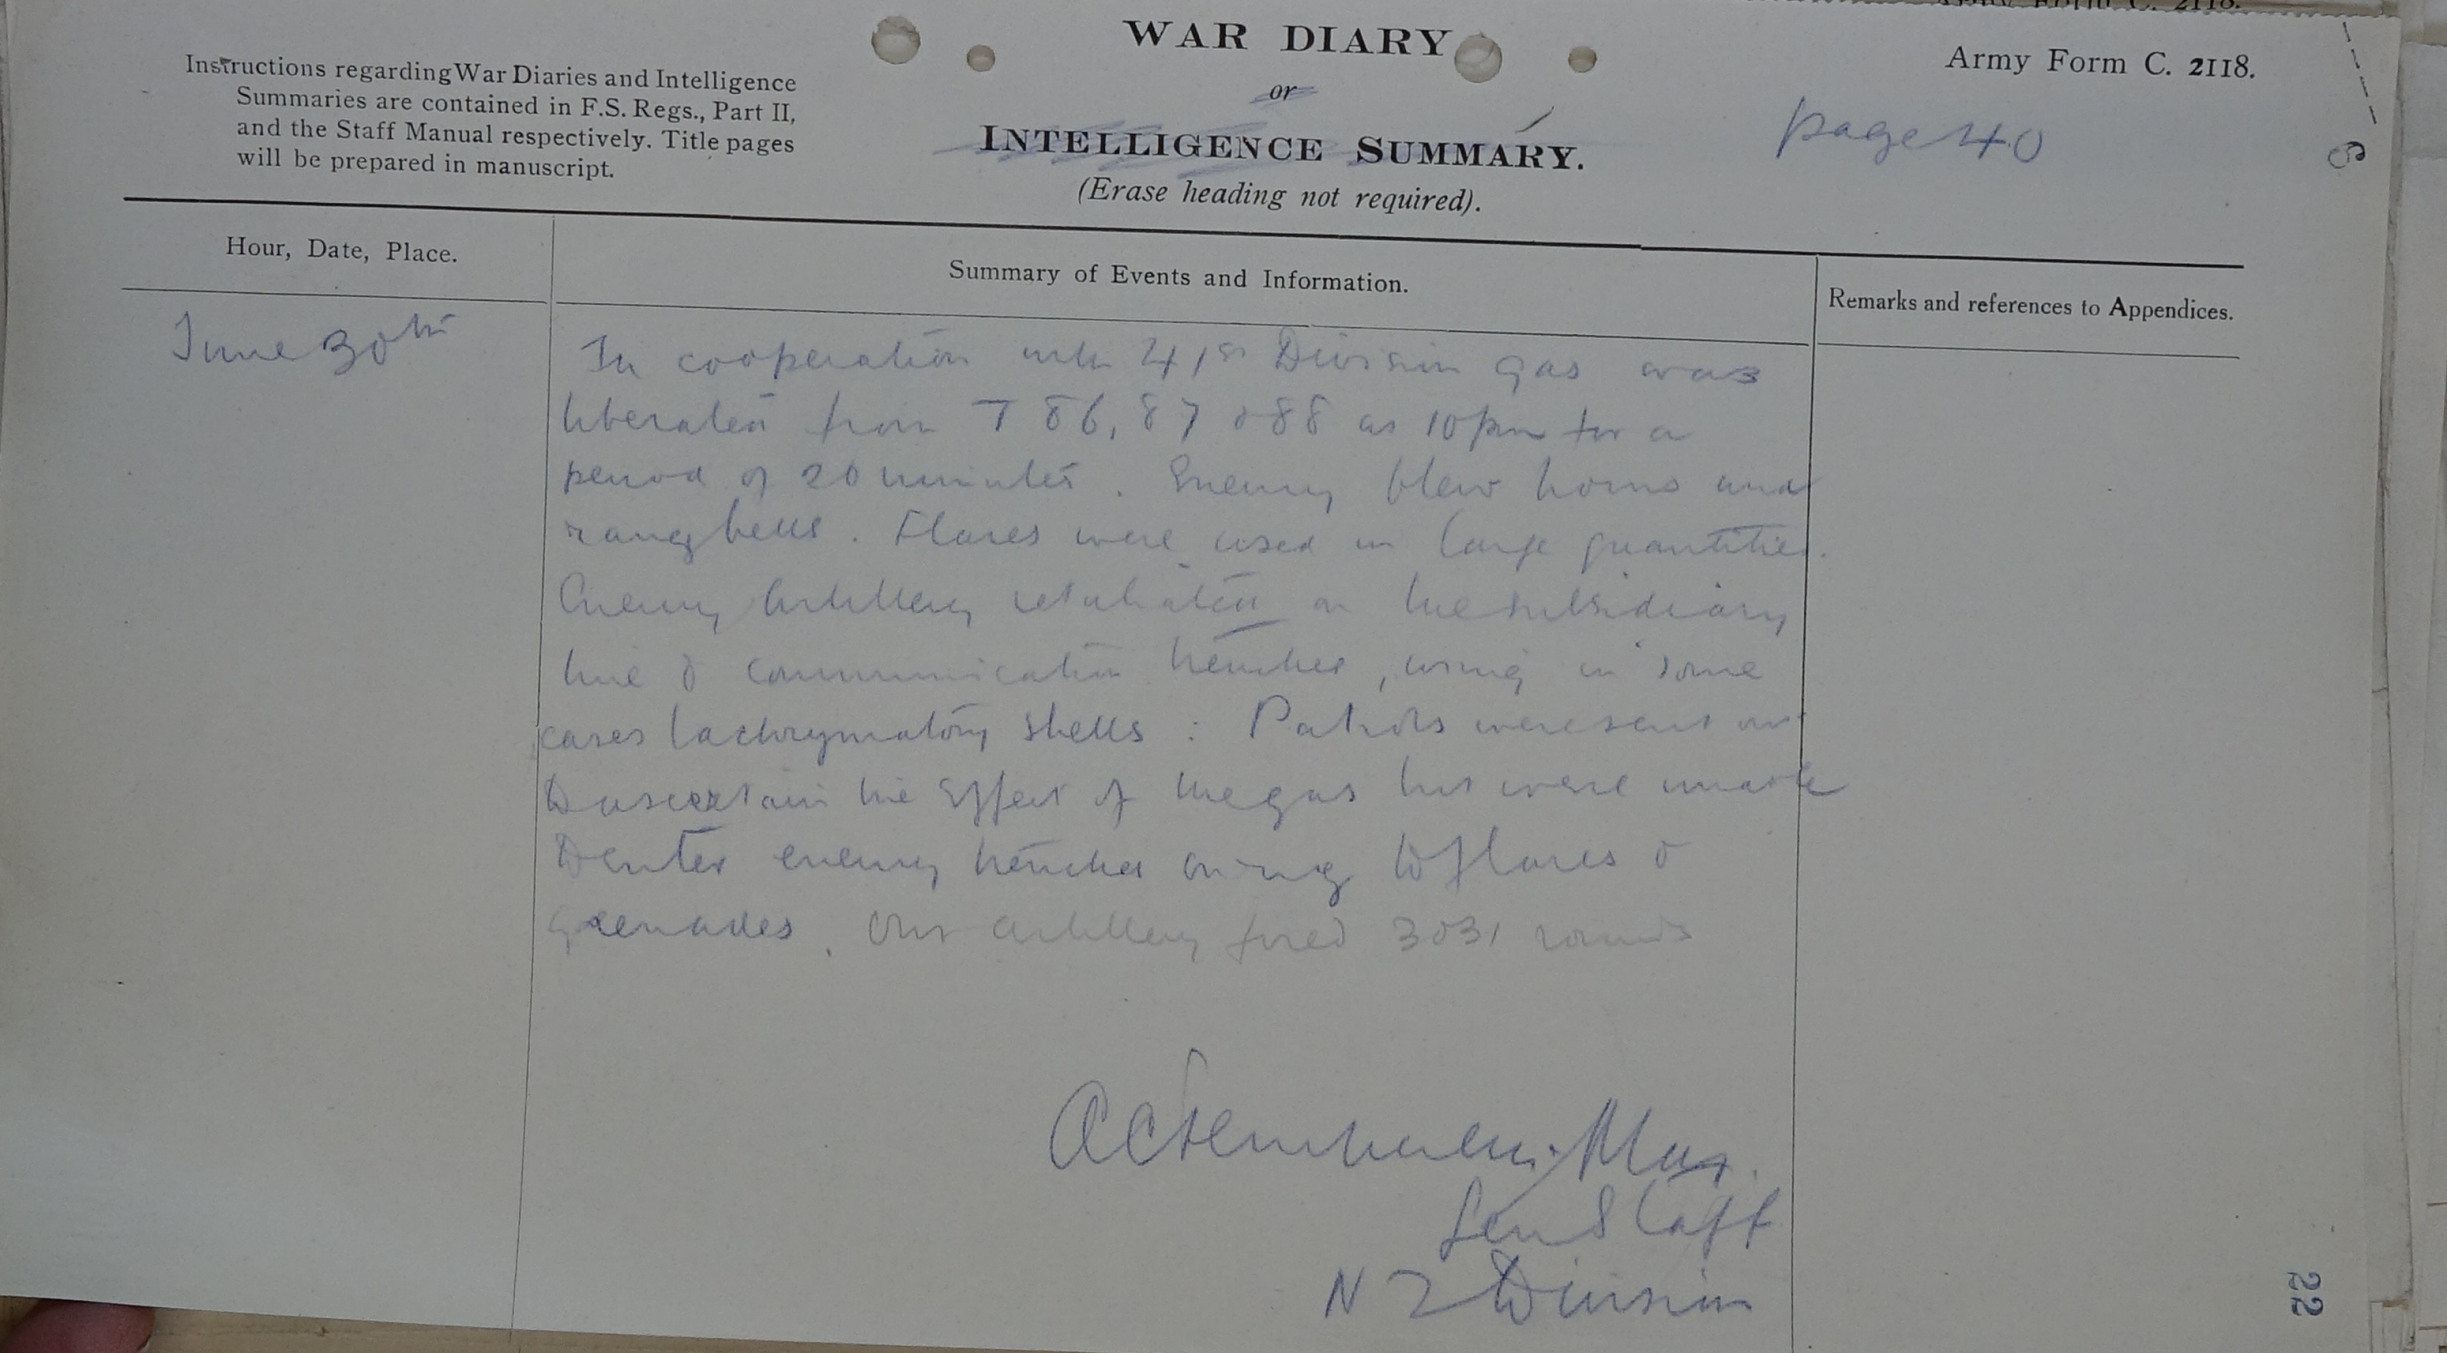 WAR DIARY
or
INTELLIGENCE SUMMARY.
(Erase heading not required).
Instructions regarding War Diaries and Intelligence
Summaries are contained in F.S. Regs., Part II,
and the Staff Manual respectively. Title pages
will be prepared in manuscript.
Army Form C. 2118.
page 40
Hour, Date, Place.
Summary of Events and Information.
Remarks and references to Appendices.
June 30th
In cooperation with 41st Division gas was
liberated from T 86, 87 & 88 at 10 pm for a
period of 20 minutes. Enemy blew horns and
rang bells. Flares were used in large quantities.
Enemy Artillery retaliated on the subsidiary
line & communication trenches, using in some
cases lachrymatory shells : Patrols were sent out
to ascertain the effect of the gas but were unable
to enter enemy trenches owing to flares &
grenades. Our artillery fired 3031 rounds
Maj.
Gen Staff
N Z Division
22